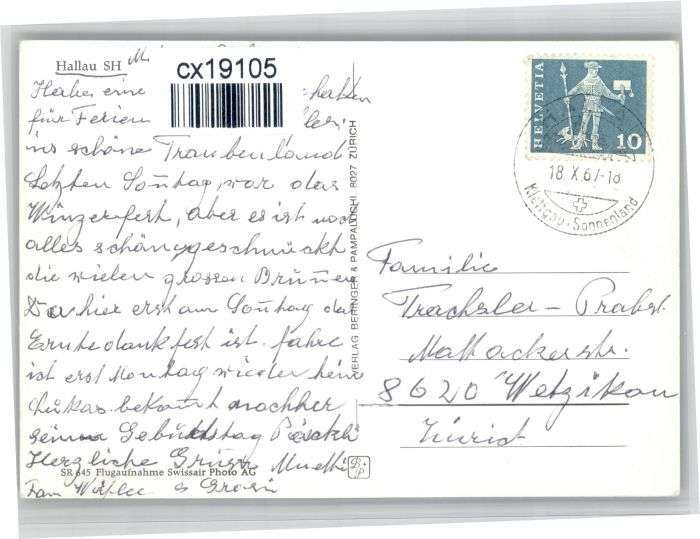 Hallau SH
cx19105
Habe eine
für Ferien
ins schöne Traubenland
Letzten Sontag war das
Winzerfest, aber es ist noch
alles schön geschmückt
die vielen grossen Brunnen
Da hier erst am Sontag das
Erntedankfest ist fahre
ich erst Montag wieder heim
Lukas bekomt nachher
seinen Geburtstag Päckli
Herzliche Grüsse
SR 645 Flugaufnahme Swissair Photo AG
Fam
VERLAG BERINGER & PAMPALUCHI 8027 ZÜRICH
HELVETIA
10
18.X.67-18
Klettgau-Sonnenland
Familie
Trachsler-Probst
Mattackerstr.
8620 Wetzikon
Zürich